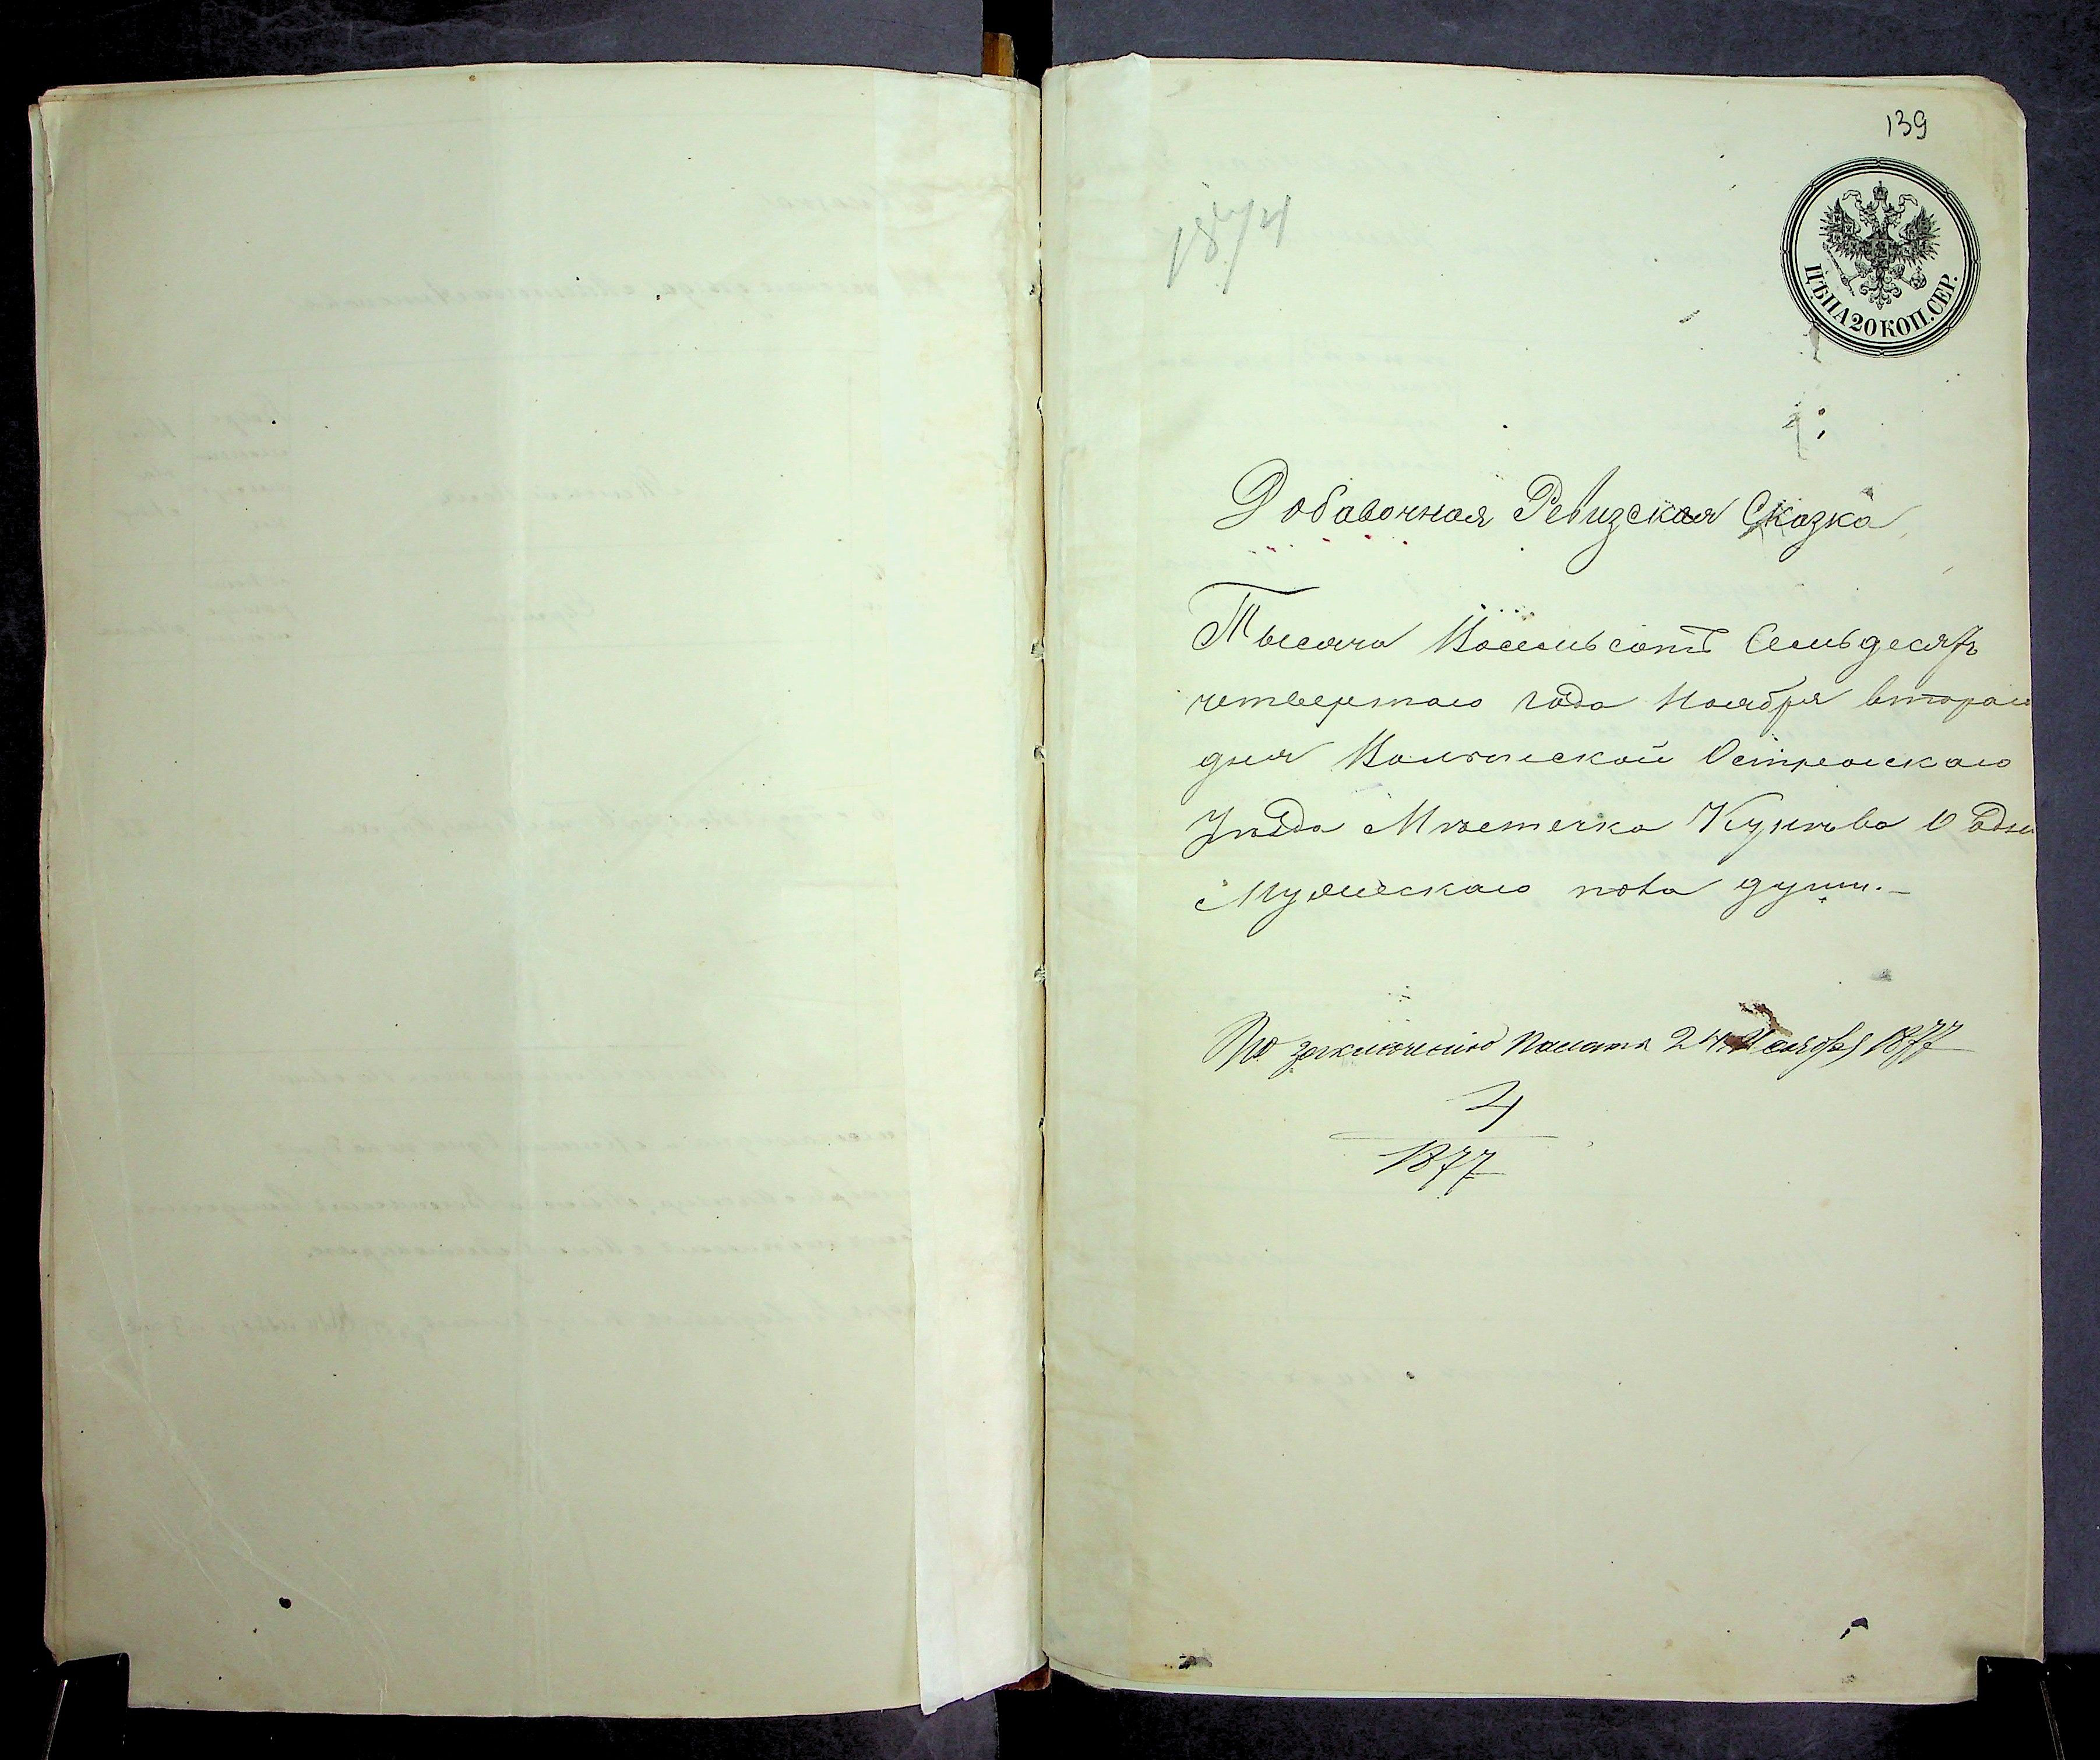 139
1874
ЦѢНА 20 КОП. СЕР.
Добавочная Ревизская Сказка
Тысяча Восемьсотъ Семьдесятъ
четвертаго года Ноября втораго
дня Волынской Острожскаго
Уѣзда Мѣстечка Кунѣва О одной
Мужескаго пола души.—
По заключению Палаты 24 Ноября 1877
4
1877